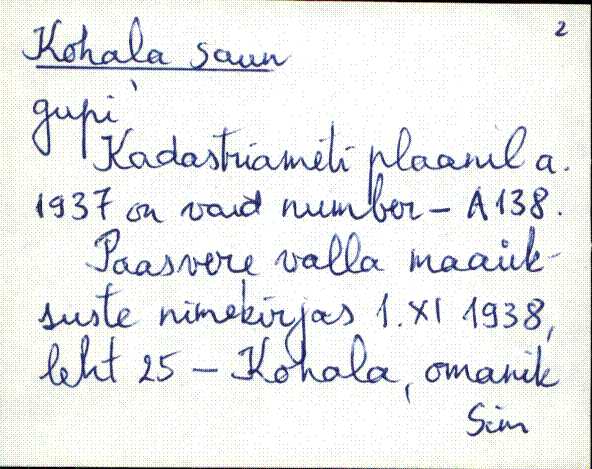 2
Kohala saun
gupi
Kadastriameti plaanil a.
1937 on vaid number – A 138.
Paasvere valla maaük-
suste nimekirjas 1. XI 1938,
leht 25 – Kohala, omanik
Sim